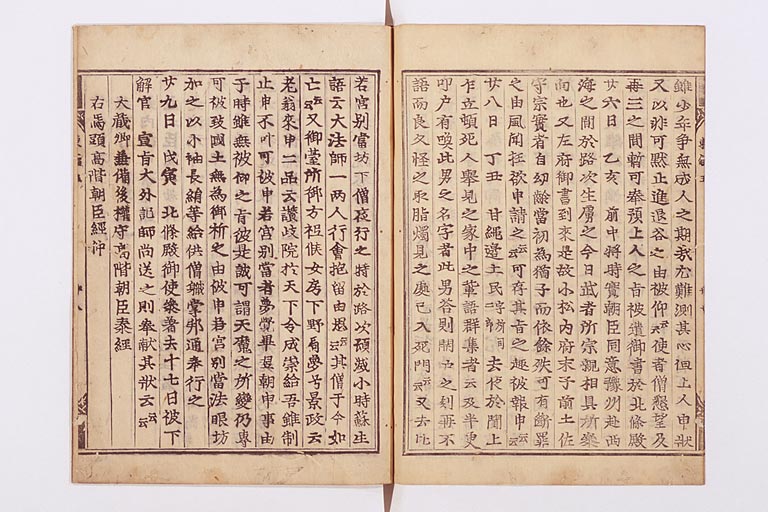 雖少年争無成人之期哉尤難測其心但上人申状
又以非可黙止進退谷之由被仰云云使者僧懇望及
再三之間暫可奉預上人之旨被遣御書於北條殿
廿六日 乙亥 前中将時實朝臣同意豫州赴西
海之間於路次生虜之今日武者所宗親相具所參
向也又左府御書到来是故小松内府末子前土佐
守宗實者自幼齡當初為猶子而依餘殃可有斷罪
之由風聞枉欲申請之云云可存其旨之趣被報申云云
廿八日 丁丑 甘繩邊土民 去夜於閨上
乍立頓死人舉見之家中之輩語群集者云及半更
叩戸有喚此男之名字者此男答則開戸之刻再不
語而良久怪之取脂燭見之處已入死門云云又去比
若宮別當坊下僧夜行之時於路次頓滅小時蘇生
語云大法師一両人行會抱留由思云云其僧于今如
亡云云又御臺所御方祗候女房下野局夢号景政云
老翁來申二品云讃岐院於天下令成祟給吾雖制
止申不叶可被申若宮別當者夢覺畢翌朝申事由
于時雖無被仰之旨彼是誠可謂天魔之所變仍專
可被致國土無為御祈之由被申若宮別當法眼坊
加之以小袖長絹等給供僧職掌邦通奉行之
廿九日 戊寅 北條殿御使參著去十七日被下
解官宣旨大外記師尚送之則奉献其狀云云
大藏卿兼備後權守高階朝臣泰經
右馬頭高階朝臣經仲